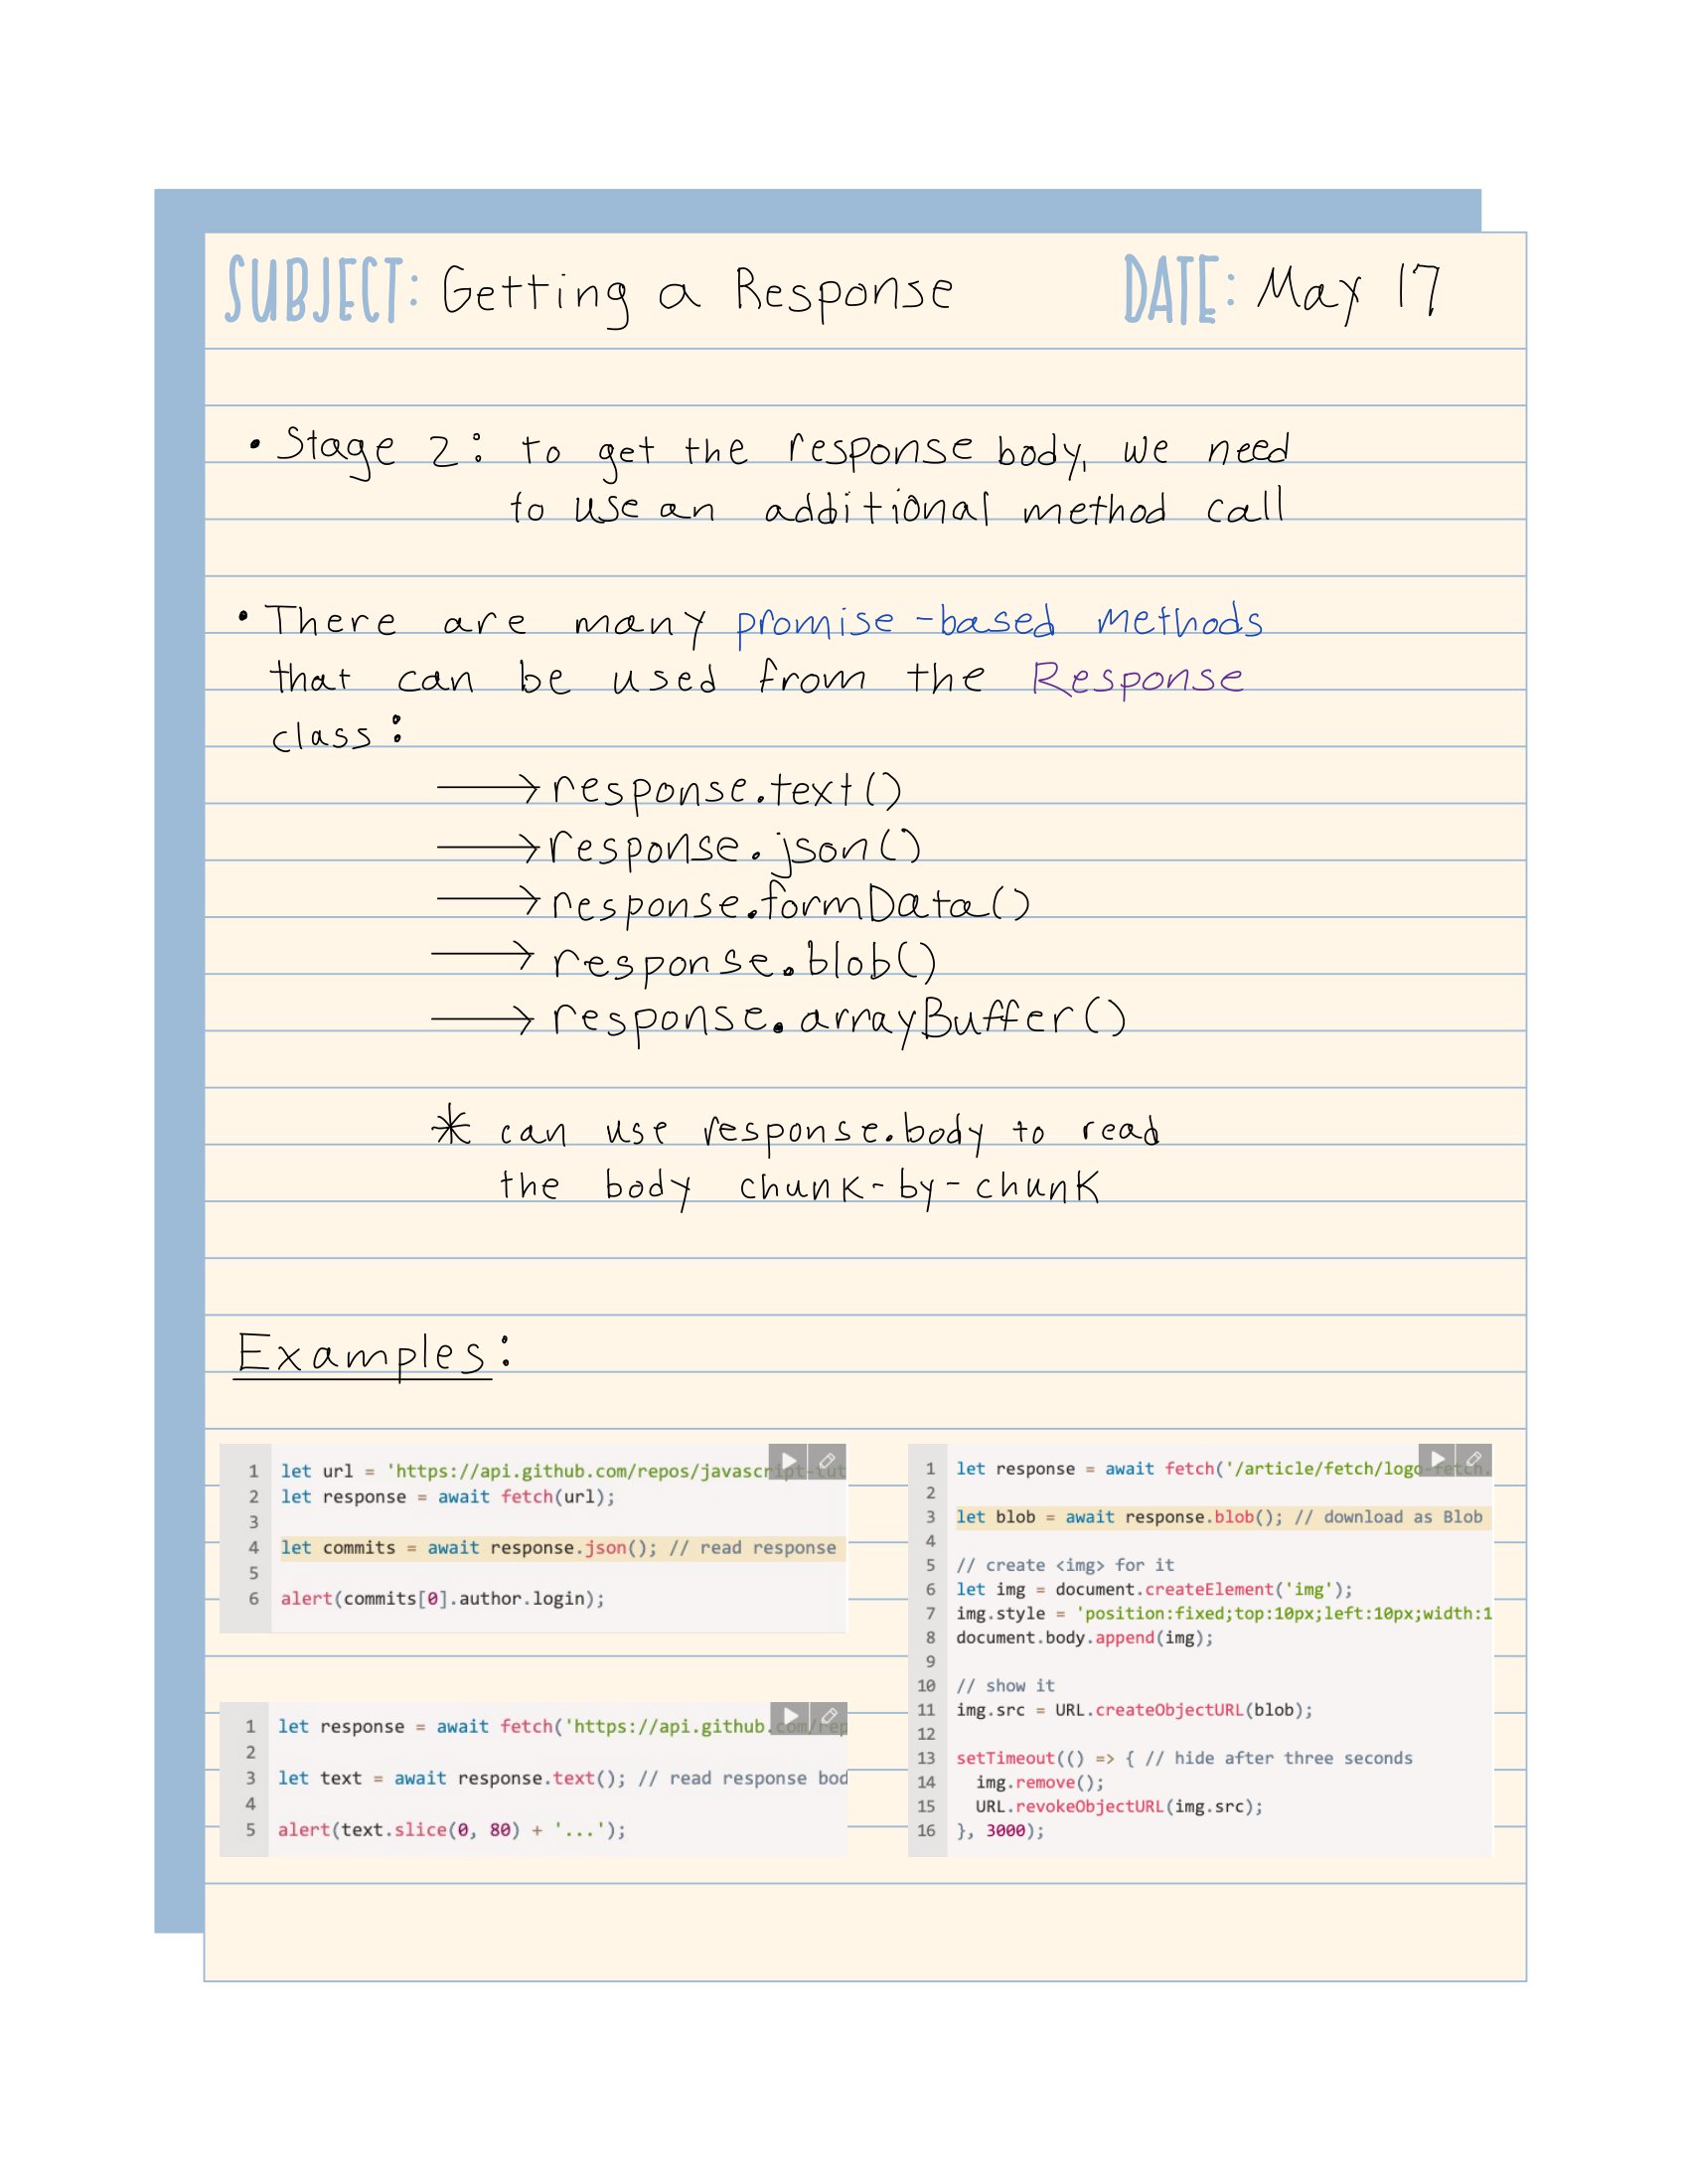 SUBJECT: Getting a Response DATE: May 17
• Stage 2: to get the response body, we need
to use an additional method call
• There are many promise-based methods
that can be used from the Response
class:
→ response.text()
→ response.json()
→ response.formData()
→ response.blob()
→ response.arrayBuffer()
* can use response.body to read
the body chunk-by-chunk
Examples:
1 let url = 'https://api.github.com/repos/javascript-tut
2 let response = await fetch(url);
3
4 let commits = await response.json(); // read response
5
6 alert(commits[0].author.login);
1 let response = await fetch('https://api.github.com/rep
2
3 let text = await response.text(); // read response bod
4
5 alert(text.slice(0, 80) + '...');
1 let response = await fetch('/article/fetch/logo-fetch.
2
3 let blob = await response.blob(); // download as Blob
4
5 // create <img> for it
6 let img = document.createElement('img');
7 img.style = 'position:fixed;top:10px;left:10px;width:1
8 document.body.append(img);
9
10 // show it
11 img.src = URL.createObjectURL(blob);
12
13 setTimeout(() => { // hide after three seconds
14 img.remove();
15 URL.revokeObjectURL(img.src);
16 }, 3000);